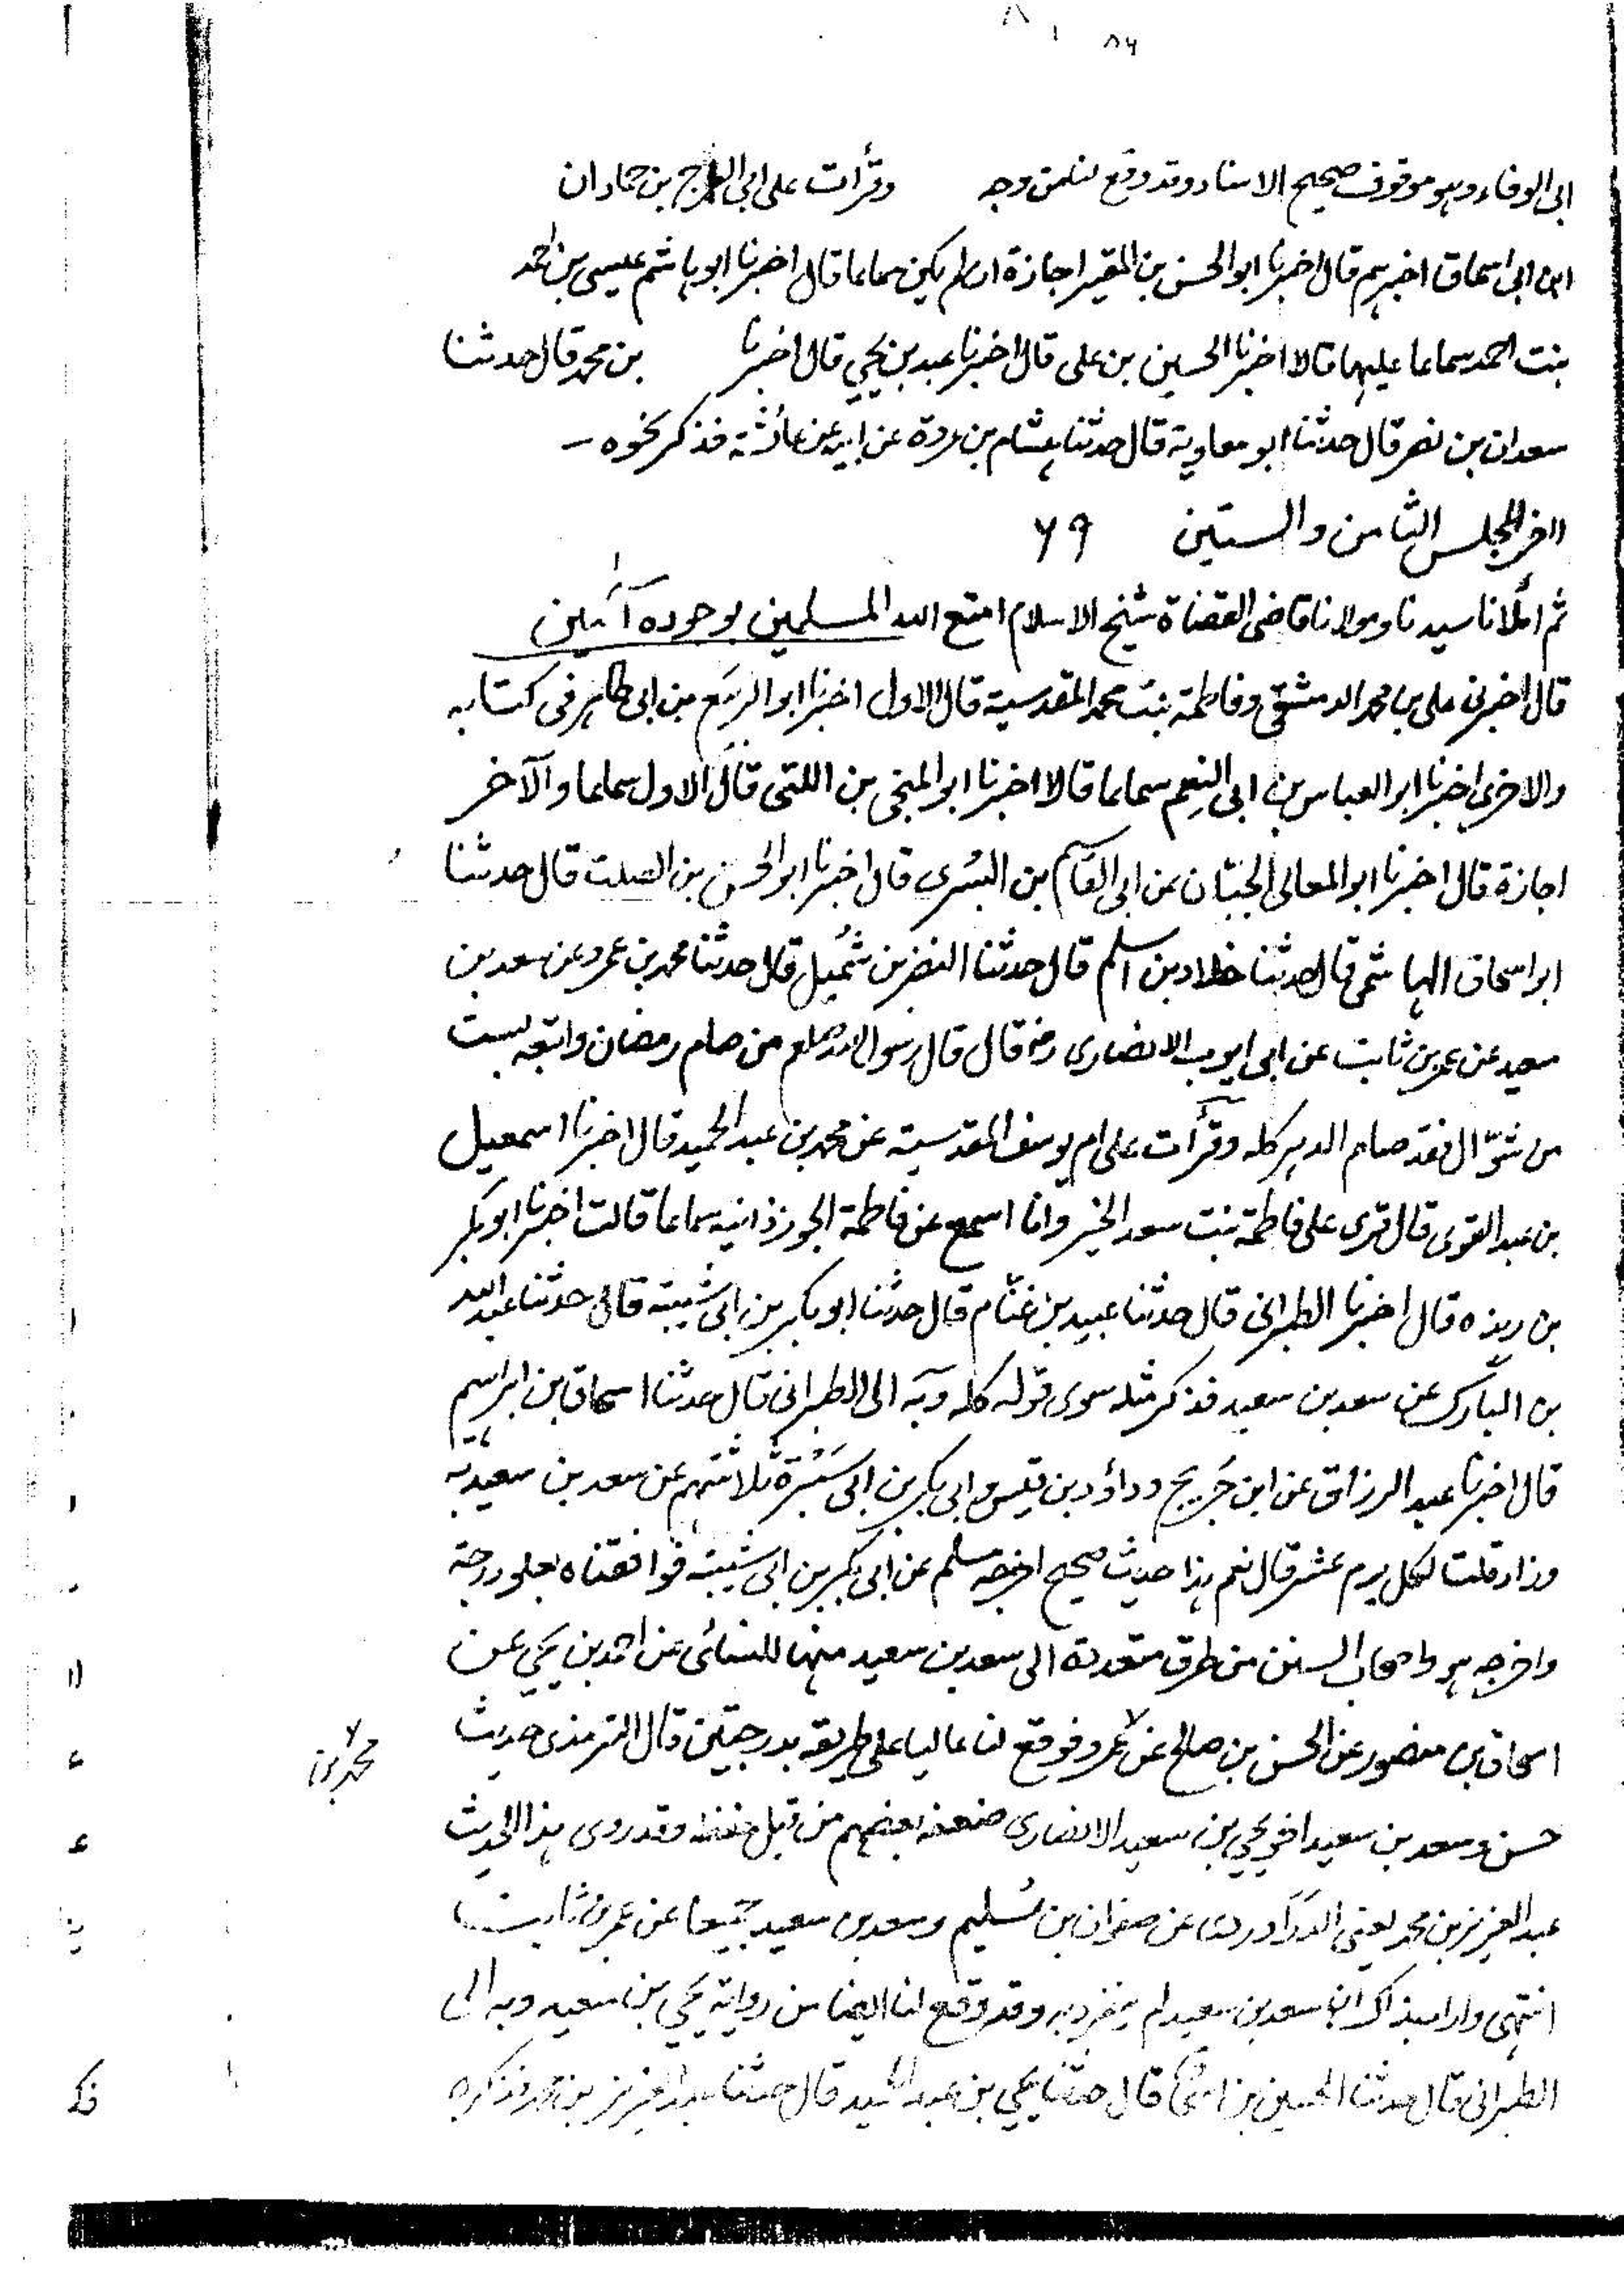 ٨٦
ابی الوفاء وہو موقوف صحیح الاسناد وقد وقع لنا من وجہ وقرأت علی ابی الفرج بن حماد ان
ابن ابی اسحاق اخبرہم قال اخبرنا ابو الحسن بن المقیر اجازة ان لم یکن سماعا قال اخبرنا ابو ہاشم عیسی بن احمد
بنت احمد سماعا علیہا قالا اخبرنا الحسین بن علی قال اخبرنا عبد بن یحیی قال اخبرنا بن محمد قال حدثنا
سعدان بن نصر قال حدثنا ابو معاویة قال حدثنا ہشام بن عروة عن ابیہ عن عائشة فذکر نحوہ -
آخر المجلس الثامن والستین ٦٩
ثم املانا سیدنا ومولانا قاضی القضاة شیخ الاسلام امتع اللہ المسلمین بوجودہ آمین
قال اخبرنی علی بن محمد الدمشقی وفاطمة بنت محمد المقدسیة قال الاول اخبرنا ابو الربیع بن ابی طاہر فی کتابہ
والاخری اخبرنا ابو العباس بن ابی النعم سماعا قالا اخبرنا ابو المنجی بن اللتی قال الاول سماعا والآخر
اجازة قال اخبرنا ابو المعالی الجبان عن ابی القاسم بن البسری قال اخبرنا ابو الحسن بن الصلت قال حدثنا
ابو اسحاق الہاشمی قال حدثنا خلاد بن اسلم قال حدثنا النضر بن شمیل قال حدثنا محمد بن عمرو عن سعد بن
سعید عن عمر بن ثابت عن ابی ایوب الانصاری رض قال قال رسول اللہ صلعم من صام رمضان واتبعہ بست
من شوّال فقد صام الدہر کلہ وقرأت علی ام یوسف المقدسیة عن محمد بن عبد الحمید قال اخبرنا اسمعیل
بن عبد القوی قال قری علی فاطمة بنت سعد الخیر وانا اسمع عن فاطمة الجوزذانیة سماعا قالت اخبرنا ابو بکر
بن ریذہ قال اخبرنا الطبرانی قال حدثنا عبید بن غنّام قال حدثنا ابو بکر بن ابی شیبة قال حدثنا عبد اللہ
بن المبارک عن سعد بن سعید فذکر مثلہ سوی قولہ کلہ وبہ الی الطبرانی قال حدثنا اسحاق بن ابراہیم
قال اخبرنا عبد الرزاق عن ابن جریج وداؤد بن قیس وابی بکر بن ابی سبرة ثلاثتہم عن سعد بن سعید بہ
وزاد قلت لکل یوم عشر قال نعم ہذا حدیث صحیح اخرجہ مسلم عن ابی بکر بن ابی شیبة فوافقناہ بعلو درجة
واخرجہ ہو واصحاب السنن من طرق متعددة الی سعد بن سعید منہا للنسائی عن احمد بن یحیی عن
اسحاق بن منصور عن الحسن بن صالح عن عمرو فوقع لنا عالیا علی طریقہ بدرجتین وقال الترمذی حدیث
محمد بن
حسن وسعد بن سعید اخو یحیی بن سعید الانصاری ضعفہ بعضہم من قبل حفظہ وقد روی ہذا الحدیث
عبد العزیز بن محمد یعنی الدراوردی عن صفوان بن سُلیم وسعد بن سعید جمیعا عن عمر بن ثابت
انتہی واراد بذاک ان سعد بن سعید لم ینفرد بہ وقد وقع لنا ایضا من روایة یحیی بن سعید وبہ الی
الطبرانی قال حدثنا الحسین بن اسحاق قال حدثنا یحیی بن عبد الحمید قال حدثنا عبد العزیز بن محمد فذکرہ